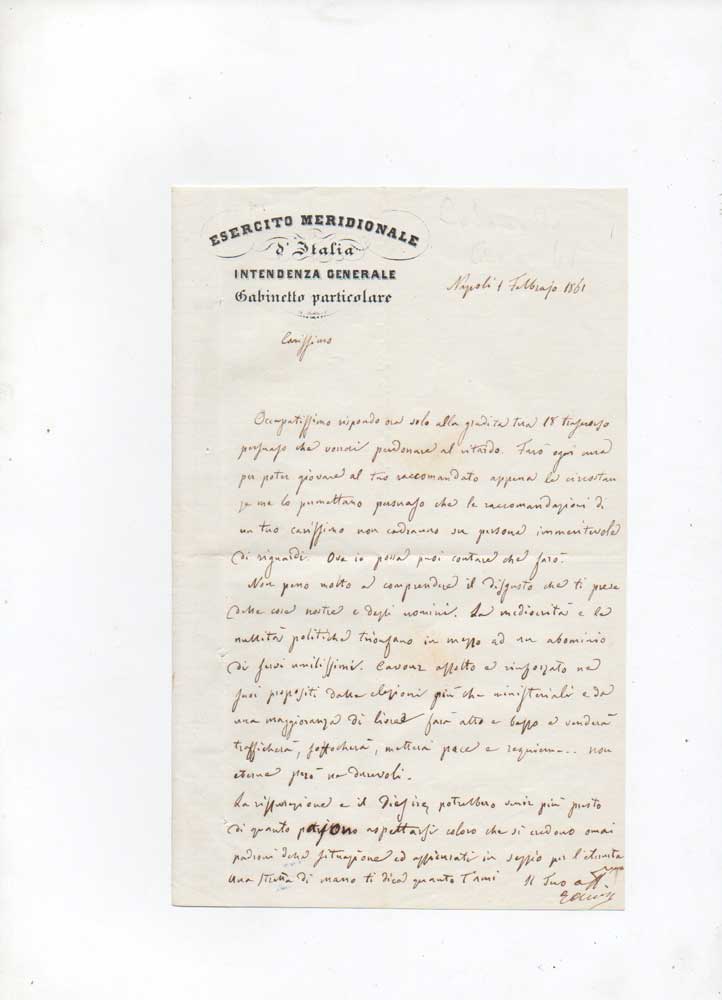 ESERCITO MERIDIONALE
d'Italia
INTENDENZA GENERALE
Gabinetto particolare
Napoli 1 Febbrajo 1861
Carissimo
Occupatissimo rispondo ora solo alla gradita tua 18 trascorso
persuaso che vorrai perdonare al ritardo. Farò ogni cura
per poter giovare al tuo raccomandato appena le circostan
ze me lo permettano persuaso che le raccomandazioni di
un tuo carissimo non cadranno su persona immeritevole
di riguardi. Ove io possa puoi contare che farò.
Non peno molto a comprendere il disgusto che ti prese
delle cose nostre e degli uomini. La mediocrità e le
nullità politiche trionfano in mezzo ad un abominio
di servi umilissimi. Cavour assolto e rinforzato ne
suoi propositi dalle elezioni più che ministeriali e da
una maggioranza di farà alto e basso e venderà
trafficherà, soffocherà, metterà pace e requiem... non
eterne però ne durevoli.
La riparazione e il Dies iræ potrebbero venir più presto
di quanto possono aspettarsi coloro che si credono omai
padroni della situazione ed assicurati in seggio per l'eternità
Una stretta di mano ti dica quanto t'ami Il Tuo aff.